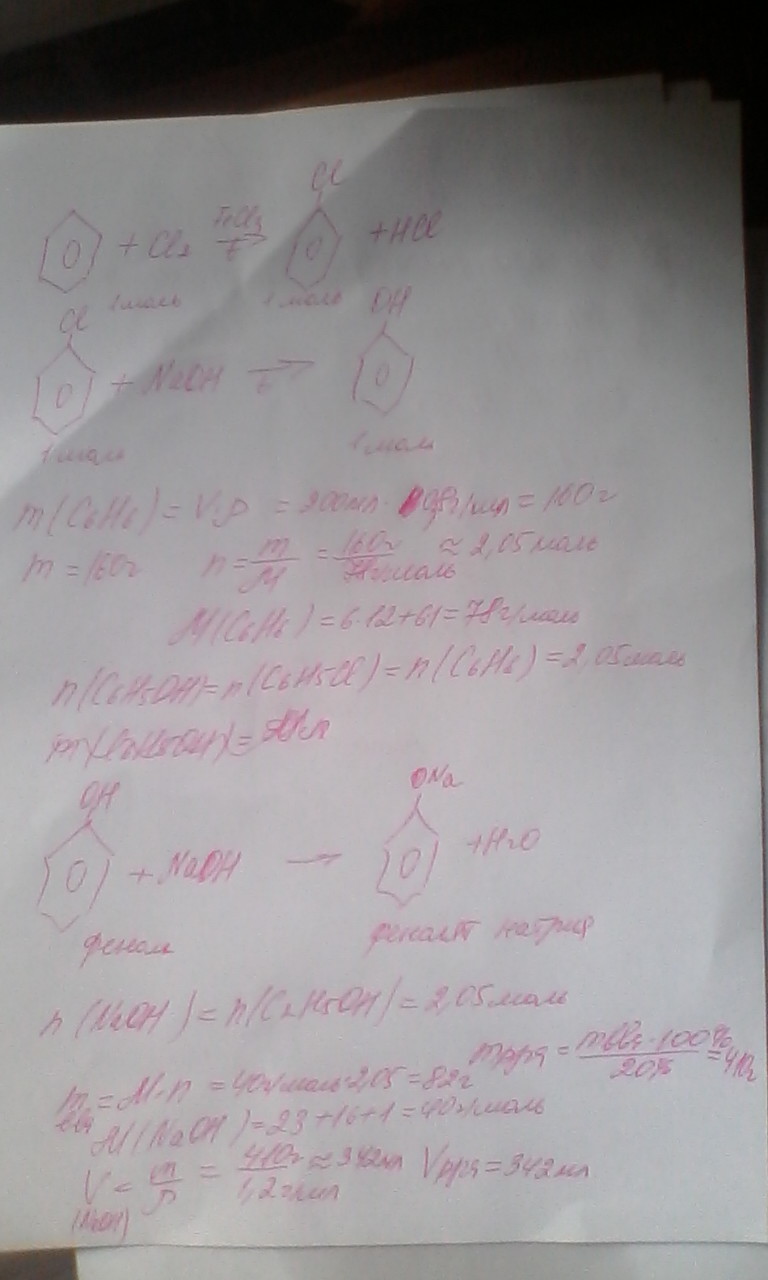 Cl
+ Cl₂ FeCl₃ t + HCl
1 моль 1 моль
Cl OH
+ NaOH t
1 моль 1 моль
m(C6H6) = V·ρ = 200мл · 0,8г/мл = 160г
m = 160г n = m/M = 160г/78г/моль ≈ 2,05 моль
M(C6H6) = 6·12+6·1 = 78г/моль
n(C6H5OH) = n(C6H5Cl) = n(C6H6) = 2,05 моль
m(C6H5OH) =
OH ONa
+ NaOH → + H2O
фенол фенолят натрия
n(NaOH) = n(C6H5OH) = 2,05 моль
mр-ра = mв-ва·100%/20% = 410г
mв-ва = M·n = 40г/моль·2,05 = 82г
M(NaOH) = 23+16+1 = 40г/моль
V(NaOH) = m/ρ = 410г/1,2г/мл ≈ 342мл Vр-ра = 342мл